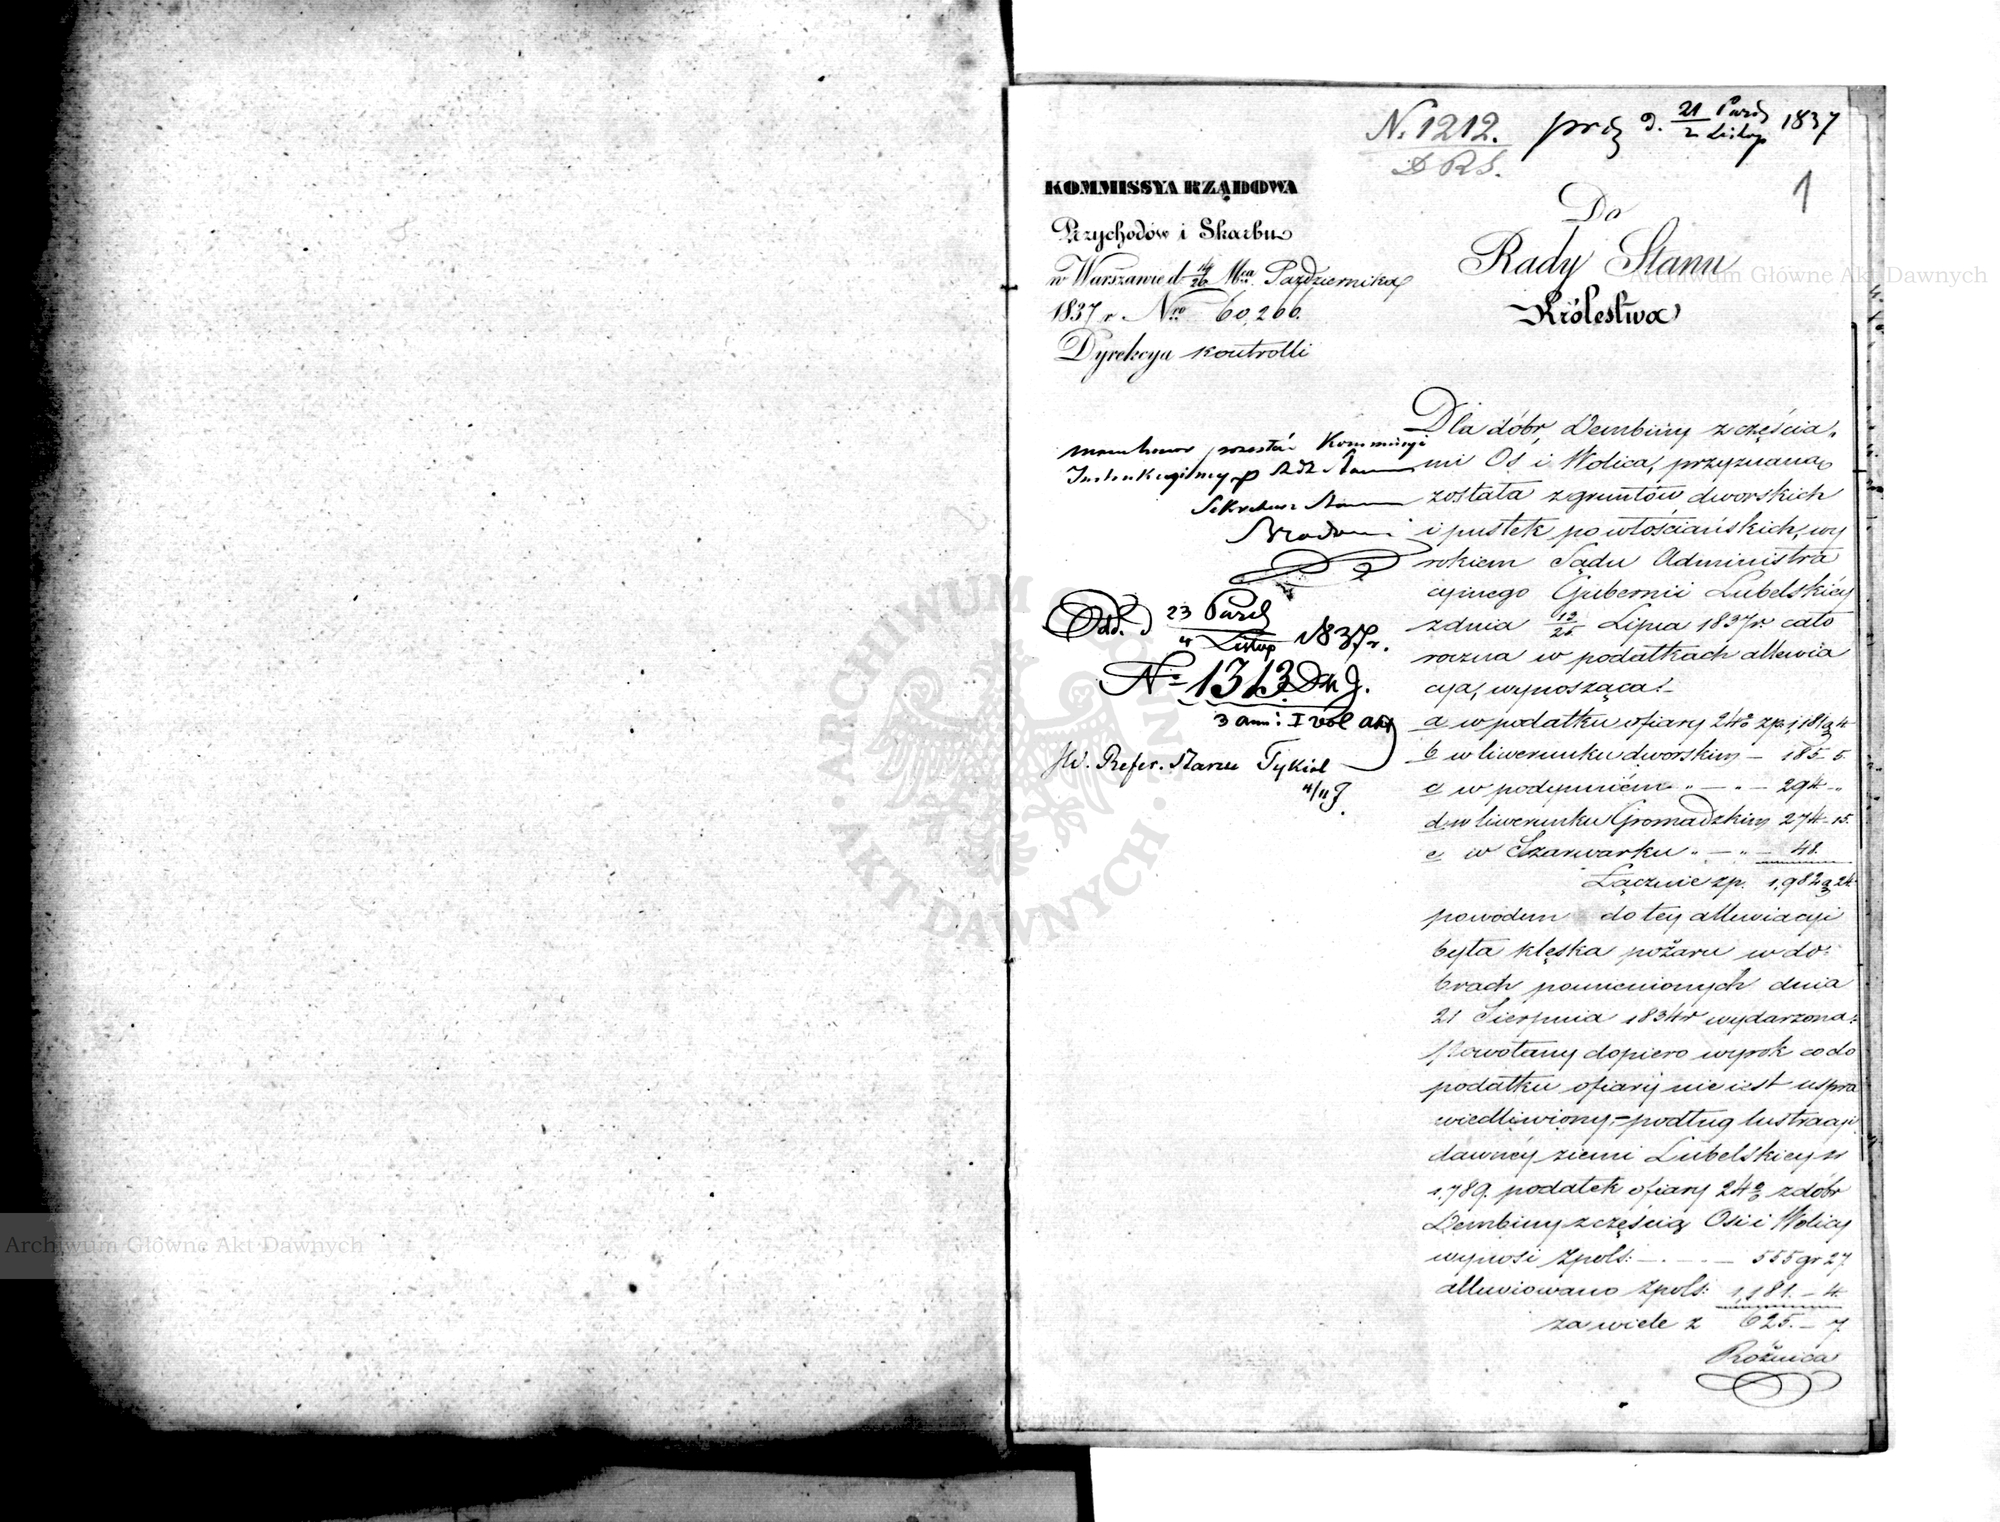 N. 1212. prez d. 21 Paźd / 2 Listop 1837
D R S.
1
KOMMISSYA RZĄDOWA
Przychodów i Skarbu
w Warszawie d. 14/26 Mca Października
1837 r. Nro 60,266.
Dyrekcya Kontrolli
Do
Rady Stanu
Królestwa
Sekretarz Stanu
Odd. d 23 Paźd / 4 Listop 1837 r.
No 1313 D n J.
3 ann: I vol akt
JW. Refer. Stanu Tykiel
4/11 J.
Dla dóbr Dembiny z częścia,
mi Oś i Wolica, przyznana
została z gruntów dworskich
i pustek po włościańskich, wy
rokiem Sądu Administra
cyinego Gubernii Lubelskiéy
z dnia 13/25 Lipca 1837 r. cało
roczna w podatkach allewia
cya, wynosząca:
a w podatku ofiary 24o zp. 1,181 g 4
b w liwerunku dworskim — 185 5.
c w podymném " — " — 294 — "
d w liwerunku Gromadzkim 274 — 15.
e w Szarwarku " — " — 48.
Łącznie zp. 1,982 g 24
powodem do tey allewiacyi
była klęska pożaru w do:
brach pomienionych dnia
21 Sierpnia 1834 r wydarzona:
Powołany dopiero wyrok co do
podatku ofiary nie iest uspra
wiedliwiony, — podług lustracyi
dawnéy ziemi Lubelskiey z
1,789. podatek ofiary 24o z dóbr
Dembiny z częścią Osi i Wolicy
wynosi Zpols: — . — . — 555 gr 27
allewiowano Zpols: 1,181. — 4.
za wiele z 625. — 7.
Różnica
Archiwum Główne Akt Dawnych
Archiwum Główne Akt Dawnych
ARCHIWUM GŁÓWNE · AKT DAWNYCH ·